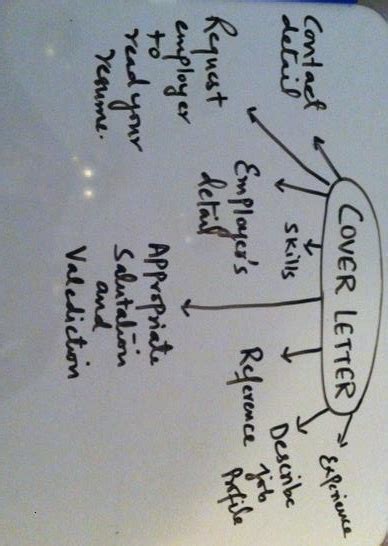 COVER LETTER
Contact
detail
Request
employer
to
read your
resume.
Employer's
detail
Skills
Appropriate
Salutation
and
Valediction
Reference
Describe
job
Profile
Experience